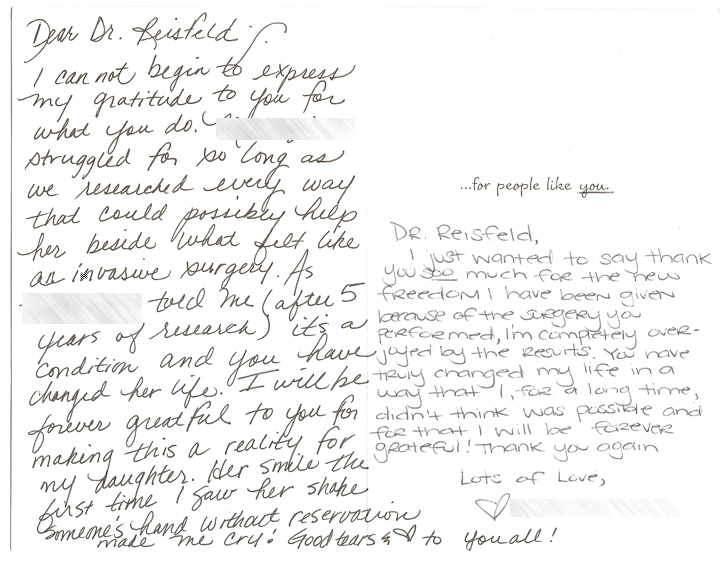 Dear Dr. Reisfeld,
I can not begin to express
my gratitude to you for
what you do.
struggled for so long as
we researched every way
that could possibly help
her beside what felt like
an invasive surgery. As
told me (after 5
years of research) it's a
condition and you have
changed her life. I will be
forever greatful to you for
making this a reality for
my daughter. Her smile the
first time I saw her shake
someone's hand without reservation
made me cry! Good tears & ♡ to you all!
...for people like you.
Dr. Reisfeld,
I just wanted to say thank
you soo much for the new
freedom I have been given
because of the surgery you
performed, I'm completely over-
joyed by the results. You have
truly changed my life in a
way that I, for a long time,
didn't think was possible and
for that I will be forever
grateful! Thank you again
Lots of Love,
♡